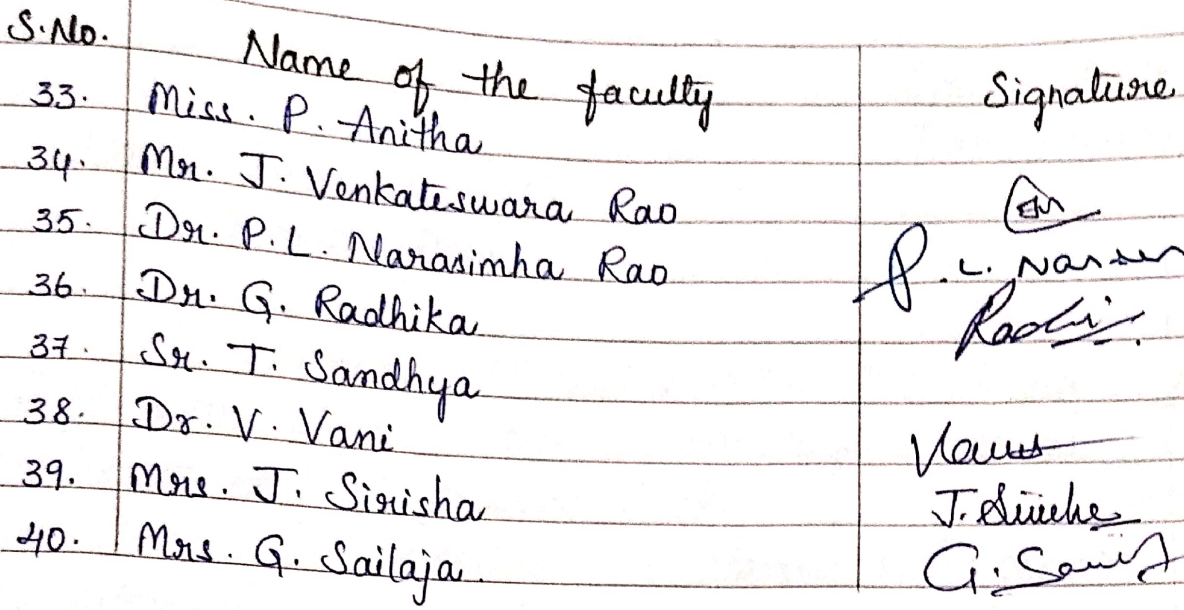 S.No. Name of the faculty Signature
33. Miss. P. Anitha
34. Mr. J. Venkateswara Rao
35. Dr. P.L. Narasimha Rao P.L. Naras
36. Dr. G. Radhika Radhi
37. Sr. T. Sandhya
38. Dr. V. Vani
39. Mrs. J. Sirisha J.
40. Mrs. G. Sailaja. G.